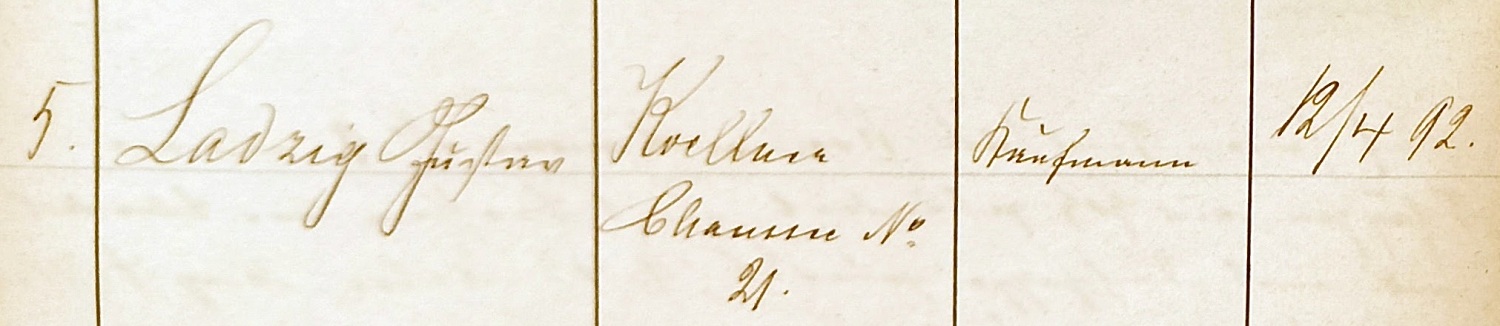 5. Ladzig Gustav Koellner Kaufmann 12/4 92.
Chaussee No
21.